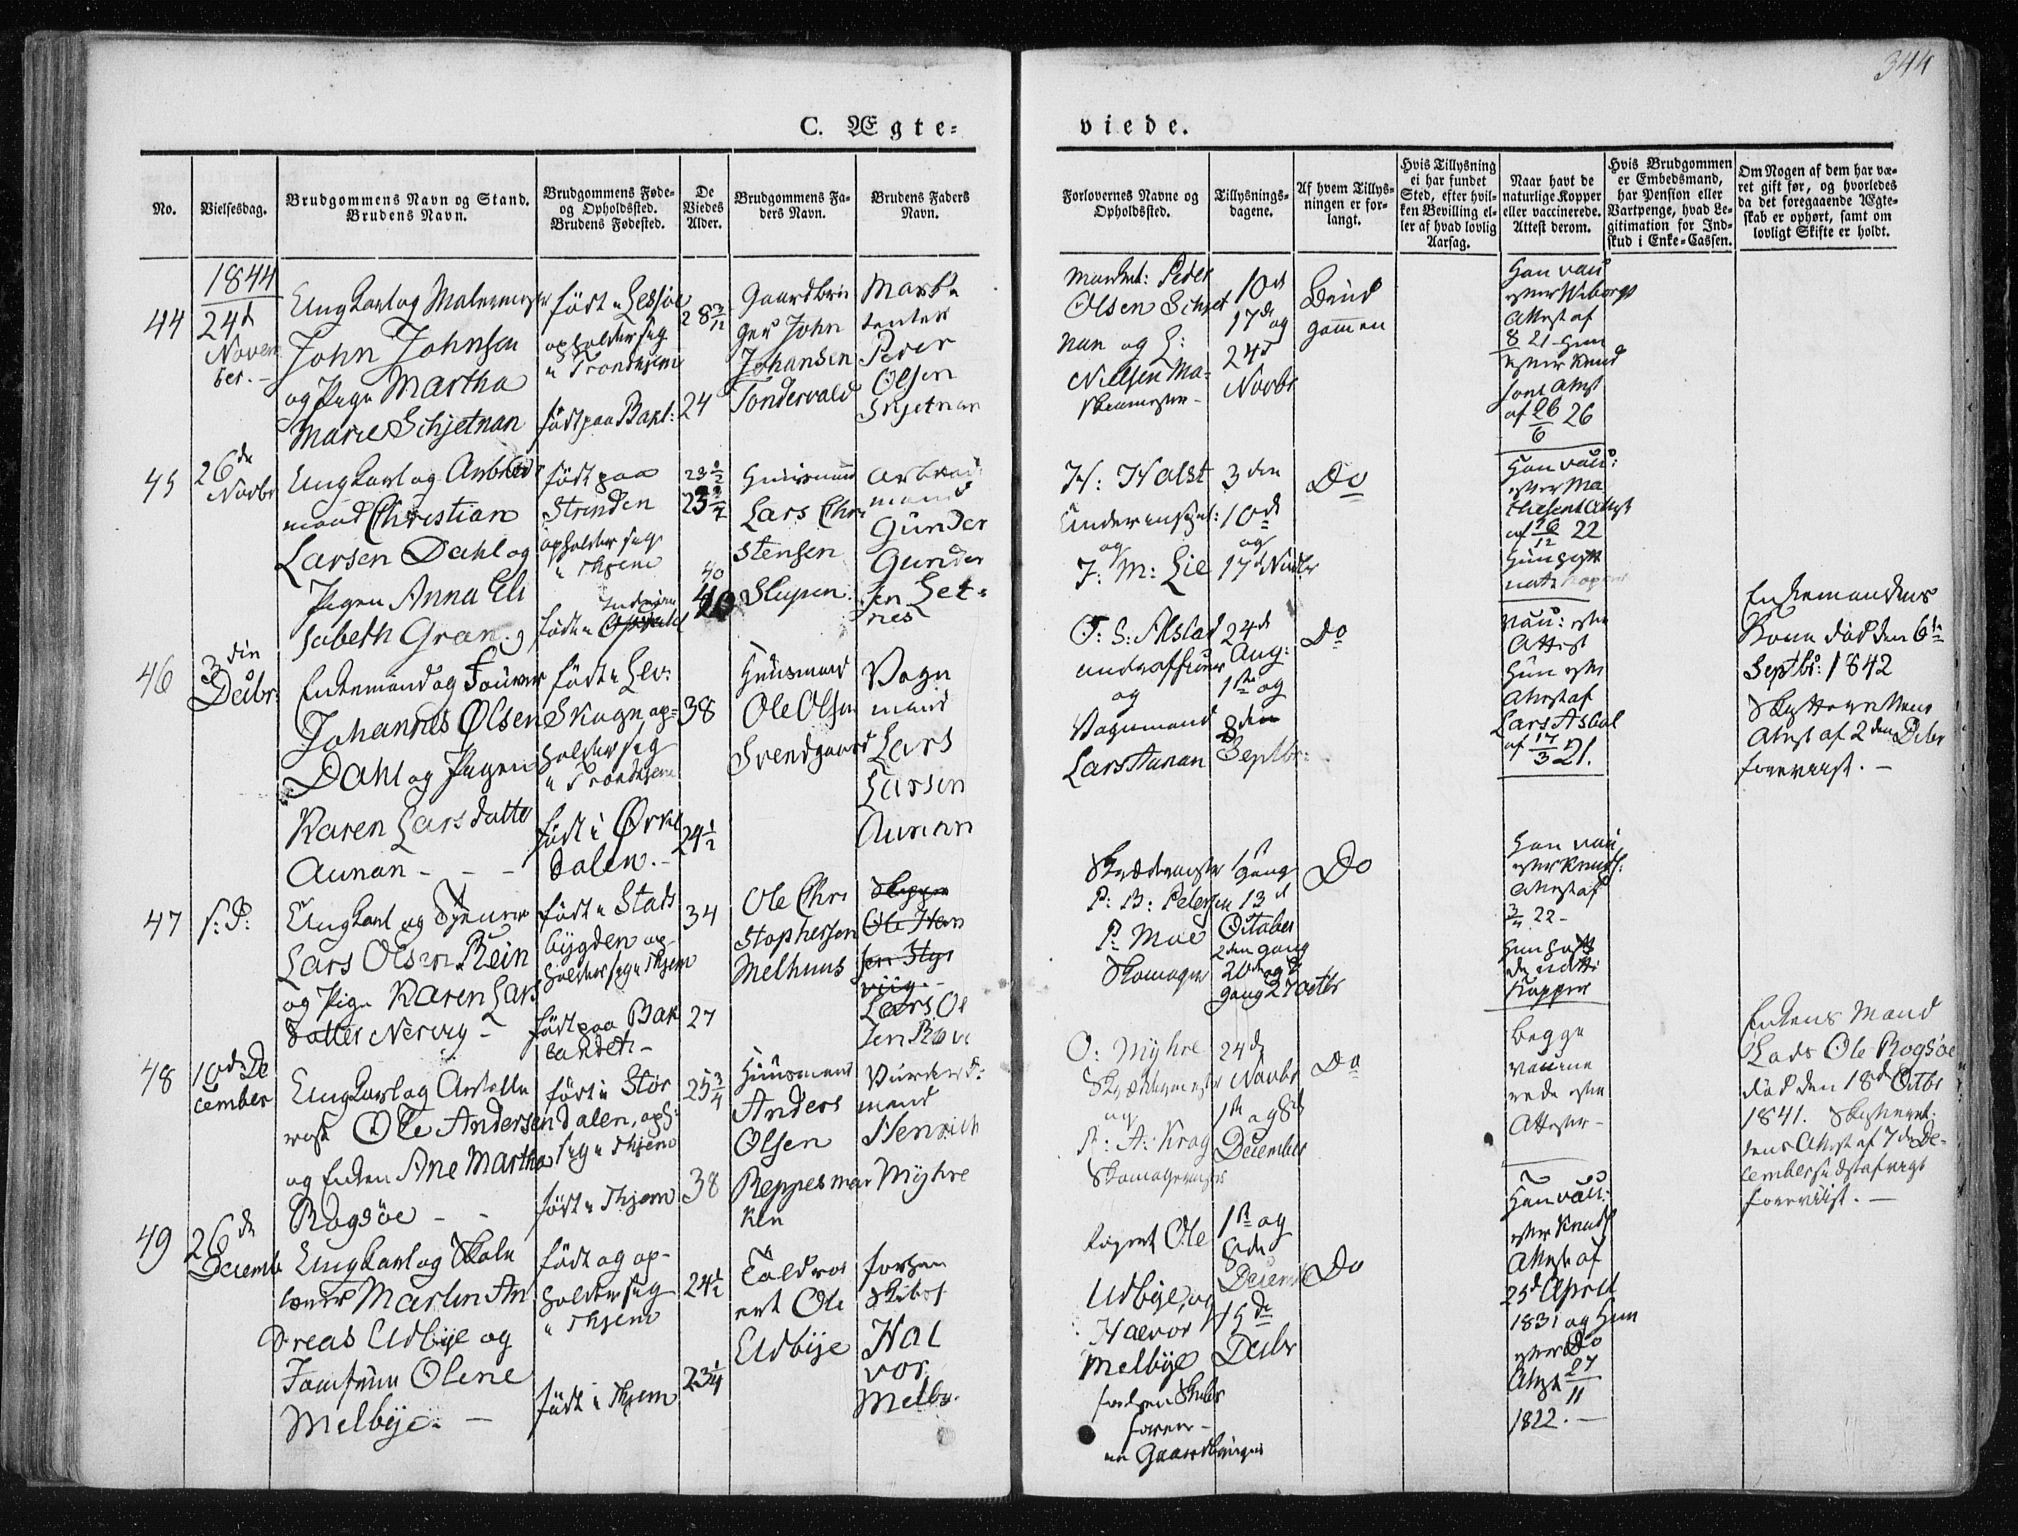 344
C. Ægte=
viede.
No.
Vielsesdag.
Brudgommens Navn og Stand.
Brudens Navn.
Brudgommens Føde-
og Opholdssted.
Brudens Fødested.
De
Viedes
Alder.
Brudgommens Fa-
ders Navn.
Brudens Faders
Navn.
Forlovernes Navne og
Opholdssted.
Tillysnings-
dagene.
Af hvem Tillys-
ningen er for-
langt.
Hvis Tillysning
ei har fundet
Sted, efter hvil-
ken Bevilling el-
ler af hvad lovlig
Aarsag.
Naar havt de
naturlige Kopper
eller vaccinerede.
Attest derom.
Hvis Brudgommen
er Embedsmand,
har Pension eller
Vartpenge, hvad Le-
gitimation for Ind-
skud i Enke-Cassen.
Om Nogen af dem har væ-
ret gift før, og hvorledes
da det foregaaende Ægte-
skab er ophørt, samt om
lovligt Skifte er holdt.
1844
44
24d
Novem
ber. -
Ungkarl og
John Johnsen
og Pige Martha
Marie Schjetnan
født i Lessøe
opholder seg
i Trondhjem
født paa Bakl:
28 3/12
24
Gaardbru
ger John
Johansen
Tondervald
Peder
Olsen
Skjetnan
Peder
Olsen Schjet
nan og L:
Nielsen
10d
17de og
24d
Novbr
Brud
gommen
Han vac
efter Wiborgs
Attest af
8 21 Hun
efter Knud
sons Attest
af 26/6 26
45
26de
Novbr
Ungkarl og Arbeids
mand Christian
Larsen Dahl og
Pigen Anna Eli
sabeth Gran
født paa
Strinden
opholder seg
i Thjem
født i
40
Huusmand
Lars Chri
stensen
Slupen
Arbeids
mand
Gunder
Gunder
sen Let=
nes
H: Holst
og
J: M: Lie
3den
10d
og
17d Novbr
Do
Han vac:
efter Ma
thesens Attest
af 16/12 22
Hun havt
nat: Kopper
46
3die
Decbr:
Enkemand og
Johannes Olsen
Dahl og Pigen
Karen Larsdatter
Aunan - - -
født i Lev:
Skogn op=
holder seg
i Trondhjem
født i Orke
dalen. -
38
24 1/2
Huusmand
Ole Olsen
Svendgaard
Vogn
mand
Lars
Larsen
Aunan
O: S: Alstad
underofficeer
og
Vognmand
Lars Aunan
24d
Aug:
1ste og
8den
Septbr:
Do
vac: efter
Attest
Hun efter
Attest af
Lars Asbøl
af 17/3 21.
Enkemandens
Kone død den 6te
Septbr: 1842
Skifterettens
Attest af 2den Decbr
foreviist. -
47
s: D:
Ungkarl og
Lars Olsen Rein
og Pige Karen Lars
datter Nervig -
født i Stads
bygden op-
holder seg i Thjem
født paa Bak
landet -
34
27
Ole Chri
stophersen
Melhuus
Skipper
Ole Han
sen Sty
viig -
Lars Ol
sen
Skrædermester
P: B: Petersen
P: Moe
Skomager
1st Gang
13d
October
2den Gang
20de og 3
Gang 27 Octbr
Do
Han vac
efter Knuds:
Attest af
3/4 22 -
Hun havt
de natt:
Kopper
48
10d De
cember
Ungkarl og Artille
rist Ole Andersen
og Enken Ane Martha
Rogsøe - -
født i Stør
dalen, oph:
seg i Thjem
født i Thjem
25 3/4
38
Huusmand
Anders
Olsen
Reppesmar
ken
mand
Henrich
Myhre
O: Myhre
Skræddermester
og
P: A: Krog
Skomagermester
24de
Novbr
1ste og 8d
December
Do
Begge
vaccine
rede efter
Attester -
Enkens Mand
Lods Ole Rogsøe
død den 18d Octbr
1841. Skifteret
tens Attest af 7de De-
cember
foreviist. -
49
26de
Decemb
Ungkarl og Skole
lærer Martin An
dreas Udbye og
Jomfrue Olene
Melbye. -
født og op-
holder seg
i Thjem
født i Thjem
24 1/2
23 1/4
Toldroe
ert Ole
Udbye
forhen
Skibsf
Hal
vor
Melby.
Ole
Udbye, og
Halvor
Melbye
forhen Skibs
fører -
nu Gaardbruger
1ste og
8de
Decemb
15de
Decbr
Do
Han vac:
efter Knuds
Attest af
25d April
1831 og Hun
efter Do
Attest 27/11
1822. -